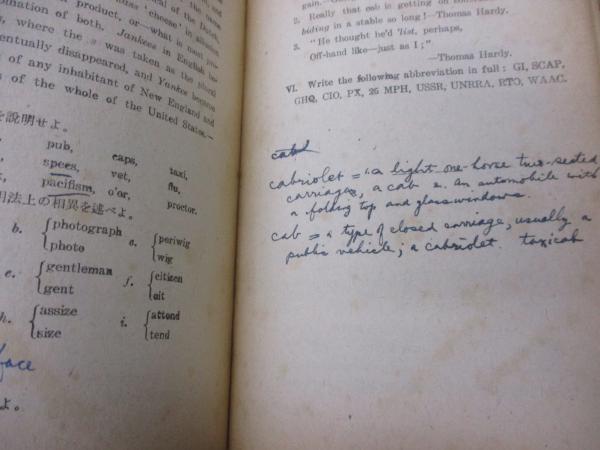 al of the Dutch,
product, or—what is more
'cheese' in allusion
bination of both. Jankees in English
, where the s was taken as the plural
entually disappeared, and Yankee became
of any inhabitant of New England and
s of the whole of the United States.—
を説明せよ。
pub, caps, taxi,
spees, vet, flu,
pacifism, o'or, proctor.
用法上の相異を述べよ。
b. photograph
photo
e. periwig
wig
e. gentleman
gent
f. citizen
cit
h. assize
size
i. attend
tend
face
よ。
gain.—
2. Really that cab is getting on
biding in a stable so long!—Thomas Hardy.
3. "He thought he'd 'list, perhaps,
Off-hand like—just as I;"
—Thomas Hardy.
VI. Write the following abbreviation in full: GI, SCAP,
GHQ, CIO, PX, 25 MPH, USSR, UNRRA, RTO, WAAC.
cabriolet = a light one-horse two-seated
carriage, a cab 2. An automobile with
a folding top and glass windows.
cab = a type of closed carriage, usually a
public vehicle; a cabriolet. taxicab